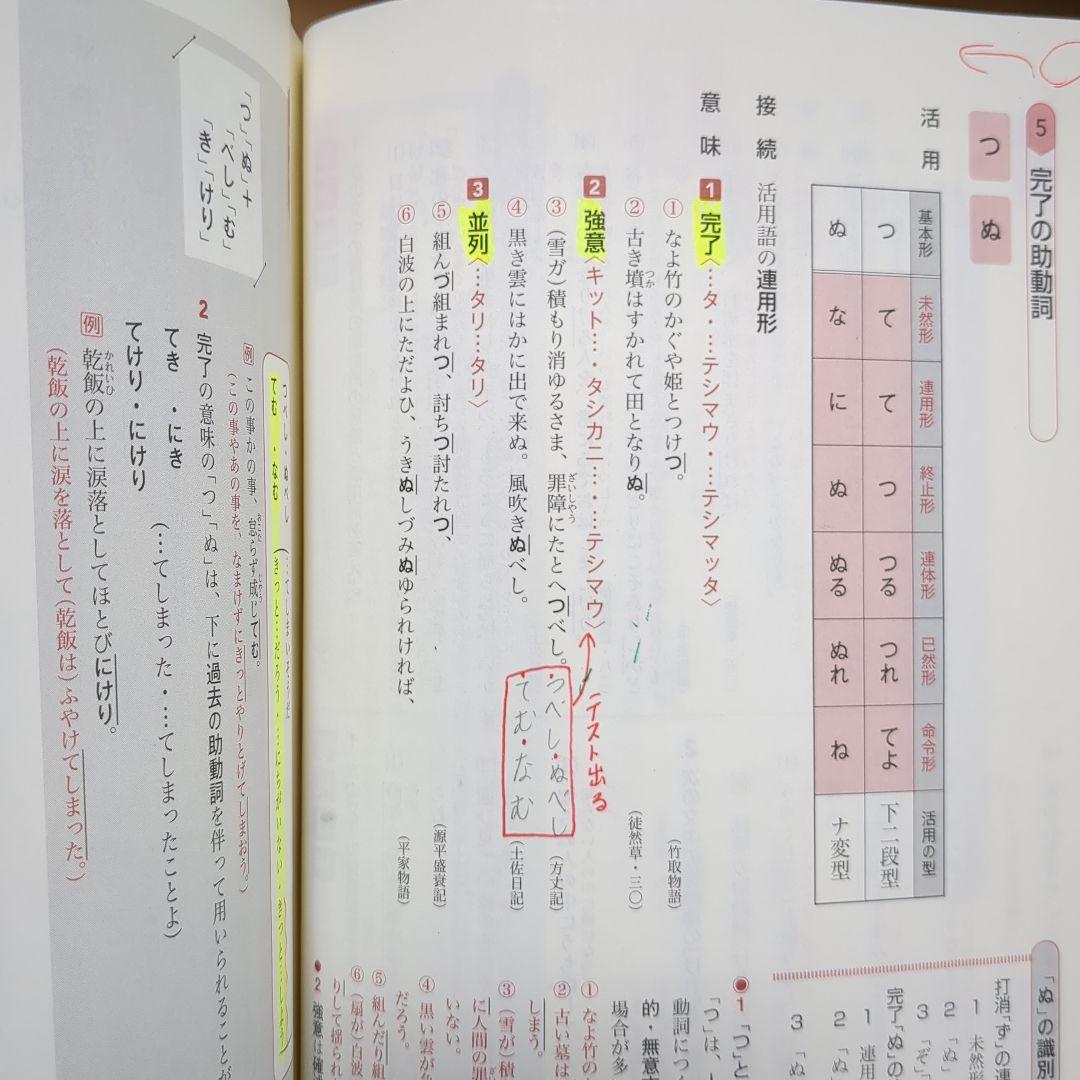 5 完了の助動詞
つ ぬ
活用
基本形 未然形 連用形 終止形 連体形 已然形 命令形 活用の型
つ て て つ つる つれ てよ 下二段型
ぬ な に ぬ ぬる ぬれ ね ナ変型
接続 活用語の連用形
意味
1 完了〈…タ・…テシマウ・…テシマッタ〉
① なよ竹のかぐや姫とつけつ。(竹取物語)
② 古き墳はすかれて田となりぬ。(徒然草・三〇)
つか
2 強意〈キット…・タシカニ…・…テシマウ〉
テスト出る
③ (雪が)積もり消ゆるさま、罪障にたとへつべし。(方丈記)
ざいしやう
つべし・ぬべし
てむ・なむ
④ 黒き雲にはかに出で来ぬ。風吹きぬべし。(土佐日記)
3 並列〈…タリ…タリ〉
⑤ 組んづ組まれつ、討ちつ討たれつ、(源平盛衰記)
⑥ 白波の上にただよひ、うきぬしづみぬゆられければ、(平家物語)
「ぬ」の識別
打消「ず」の連
1 未然形
2 「ぬ」
3 「ぞ」
完了「ぬ」の
1 連用
2 「ぬ」
3 「ぬ
1 「つ」と
「つ」は、
動詞につ
的・無意
場合が多
① なよ竹の
② 古い墓は
しまう。
③ (雪が)積
に人間の罪
いない。
④ 黒い雲が
だろう。
⑤ 組んだり組
⑥ (扇が)白波
りして揺られ
2 強意は確
「つ」「ぬ」+
「べし」「む」
「き」「けり」
つべし・ぬべし (…てしまいそうだ
てむ・なむ (きっと…だろう・…にちがいない・きっと…しよう)
例 この事かの事、怠らず成じてむ。
おこた じやう
(この事やあの事を、なまけずにきっとやりとげてしまおう。)
2 完了の意味の「つ」「ぬ」は、下に過去の助動詞を伴って用いられることが
てき・にき
てけり・にけり (…てしまった・…てしまったことよ)
例 乾飯の上に涙落としてほとびにけり。
かれいひ
(乾飯の上に涙を落として(乾飯は)ふやけてしまった。)